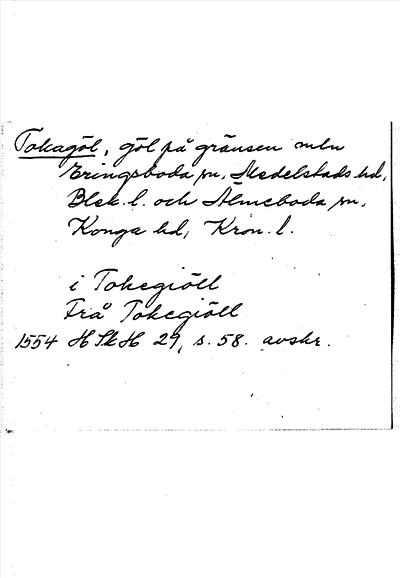 Tokagöl, göl på gränsen mln
Eringsboda sn, Medelstads hd,
Blek. l. och Älmeboda sn,
Konga hd, Kron. l.
i Tokegiöll
Frå Tokegiöll
1554 H Sk H 29, s. 58. avskr.